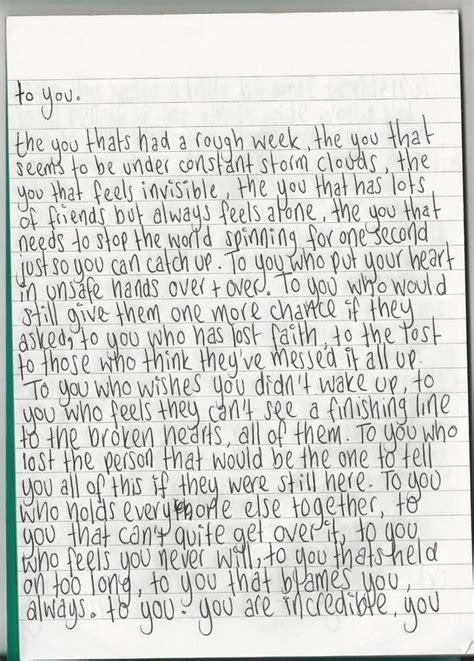 to you.
the you thats had a rough week, the you that
seems to be under constant storm clouds, the
you that feels invisible, the you that has lots
of friends but always feels alone, the you that
needs to stop the world spinning for one second
just so you can catch up. To you who put your heart
in unsafe hands over + over. To you who would
still give them one more chance if they
asked, to you who has lost faith, to the lost
to those who think they've messed it all up.
To you who wishes you didn't wake up, to
you who feels they can't see a finishing line
to the broken hearts, all of them. To you who
lost the person that would be the one to tell
you all of this if they were still here. To you
who holds everyone else together, to
you that can't quite get over it, to you
who feels you never will, to you thats held
on too long, to you that blames you,
always. to you. you are incredible, you